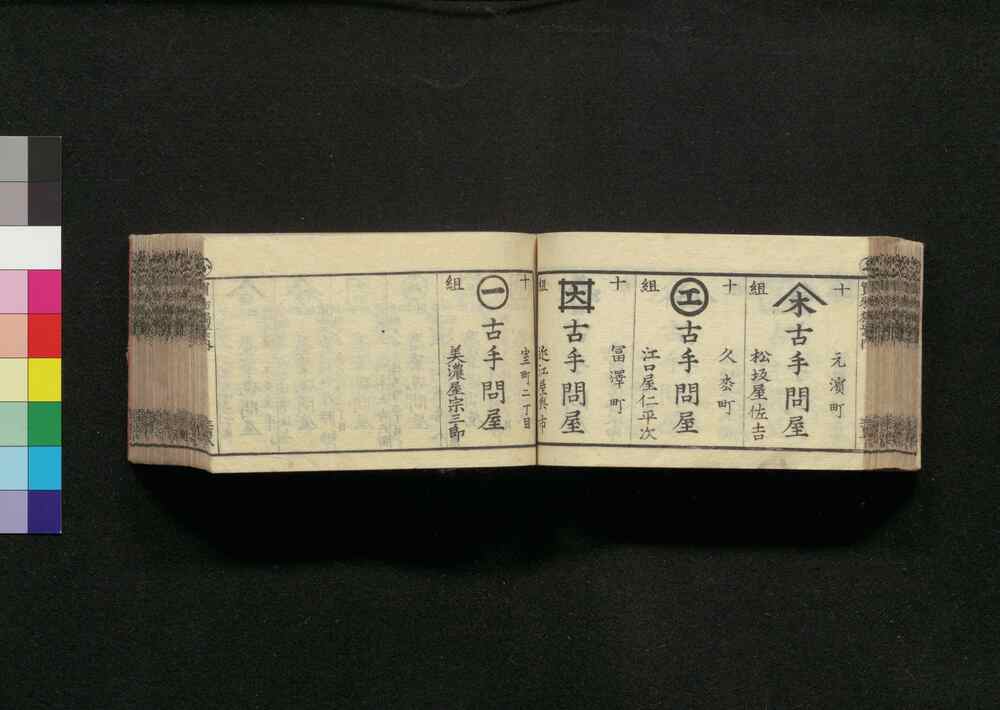 十
元濱町
木
古手問屋
組
松坂屋佐吉
十
久枩町
エ
古手問屋
組
江口屋仁平次
十
冨澤町
因
古手問屋
組
近江屋與市
十
室町二丁目
一
古手問屋
組
美濃屋宗三郎